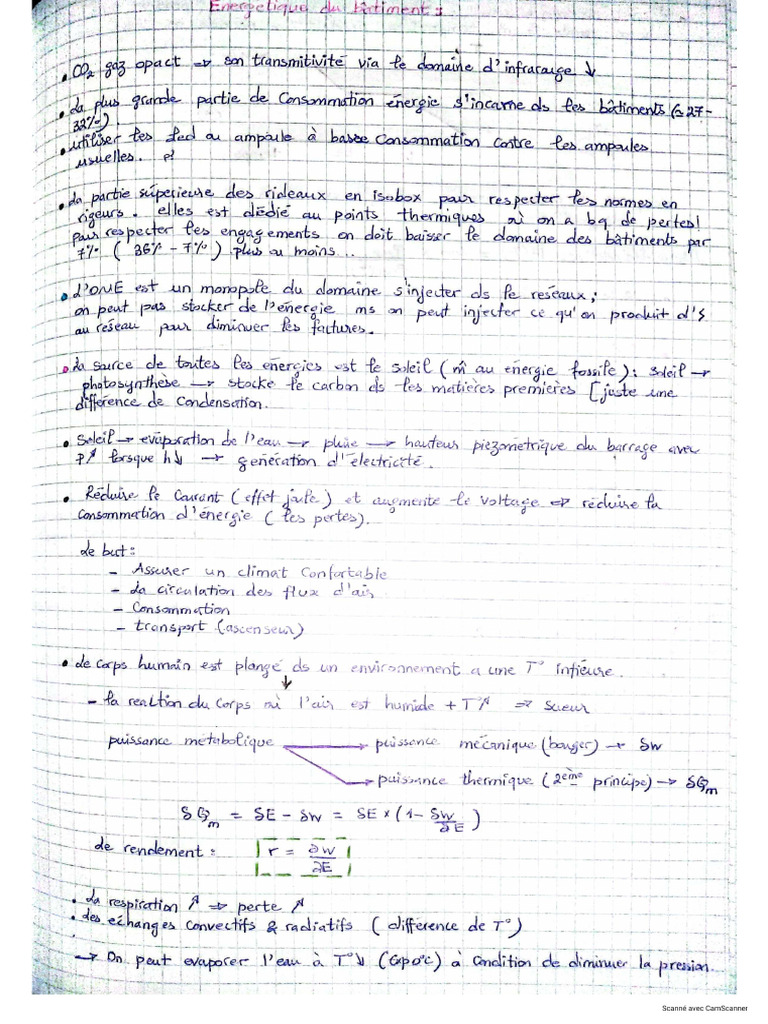 Energetique du bâtiment :
• CO2 gaz opact ⇒ son transmitivité via le domaine d'infrarouge ↓
• La plus grande partie de consommation énergie s'incarne ds les bâtiments (≃ 27-
32%).
• utiliser les led ou ampoule à basse consommation contre les ampoules
usuelles.
• La partie supérieure des rideaux en isobox pour respecter les normes en
rigeurs. elles est dédié au points thermiques où on a bq de pertes!
pour respecter les engagements on doit baisser le domaine des bâtiments par
7% ( 36% - 7%) plus ou moins..
• L'ONE est un monopole du domaine s'injecter ds le reseaux ;
on peut pas stocker de l'énergie ms on peut injecter ce qu'on produit d'S
au réseau pour diminuer les factures.
• La source de toutes les energies est le soleil (m̂ au énergie fossile) : soleil →
photosynthèse → stocke le carbon ds les matières premières [juste une
différence de condensation.
• Soleil → evaporation de l'eau → pluie → hauteur piezometrique du barrage avec
P↗ lorsque h↓ → generation d'électricité.
• Réduire le courant (effet joule) et augmente le voltage ⇒ réduire la
consommation d'énergie ( les pertes).
Le but :
- Assurer un climat confortable
- La circulation des flux d'air
- Consommation
- transport (ascenseur)
• Le corps humain est plongé ds un environnement a une T° inférieure.
↓
- la reaction du corps où l'air est humide + T°↗ ⇒ sueur
puissance métabolique → puissance mécanique (bouger) → δW
→ puissance thermique (2ème principe) → δQm
δQm = δE - δW = δE × (1 - δW/∂E)
Le rendement : r = ∂W/∂E
• La respiration ↗ ⇒ perte ↗
• des échanges convectifs & radiatifs ( différence de T°)
→ On peut evaporer l'eau à T°↓ à condition de diminuer la pression.
Scanné avec CamScanner